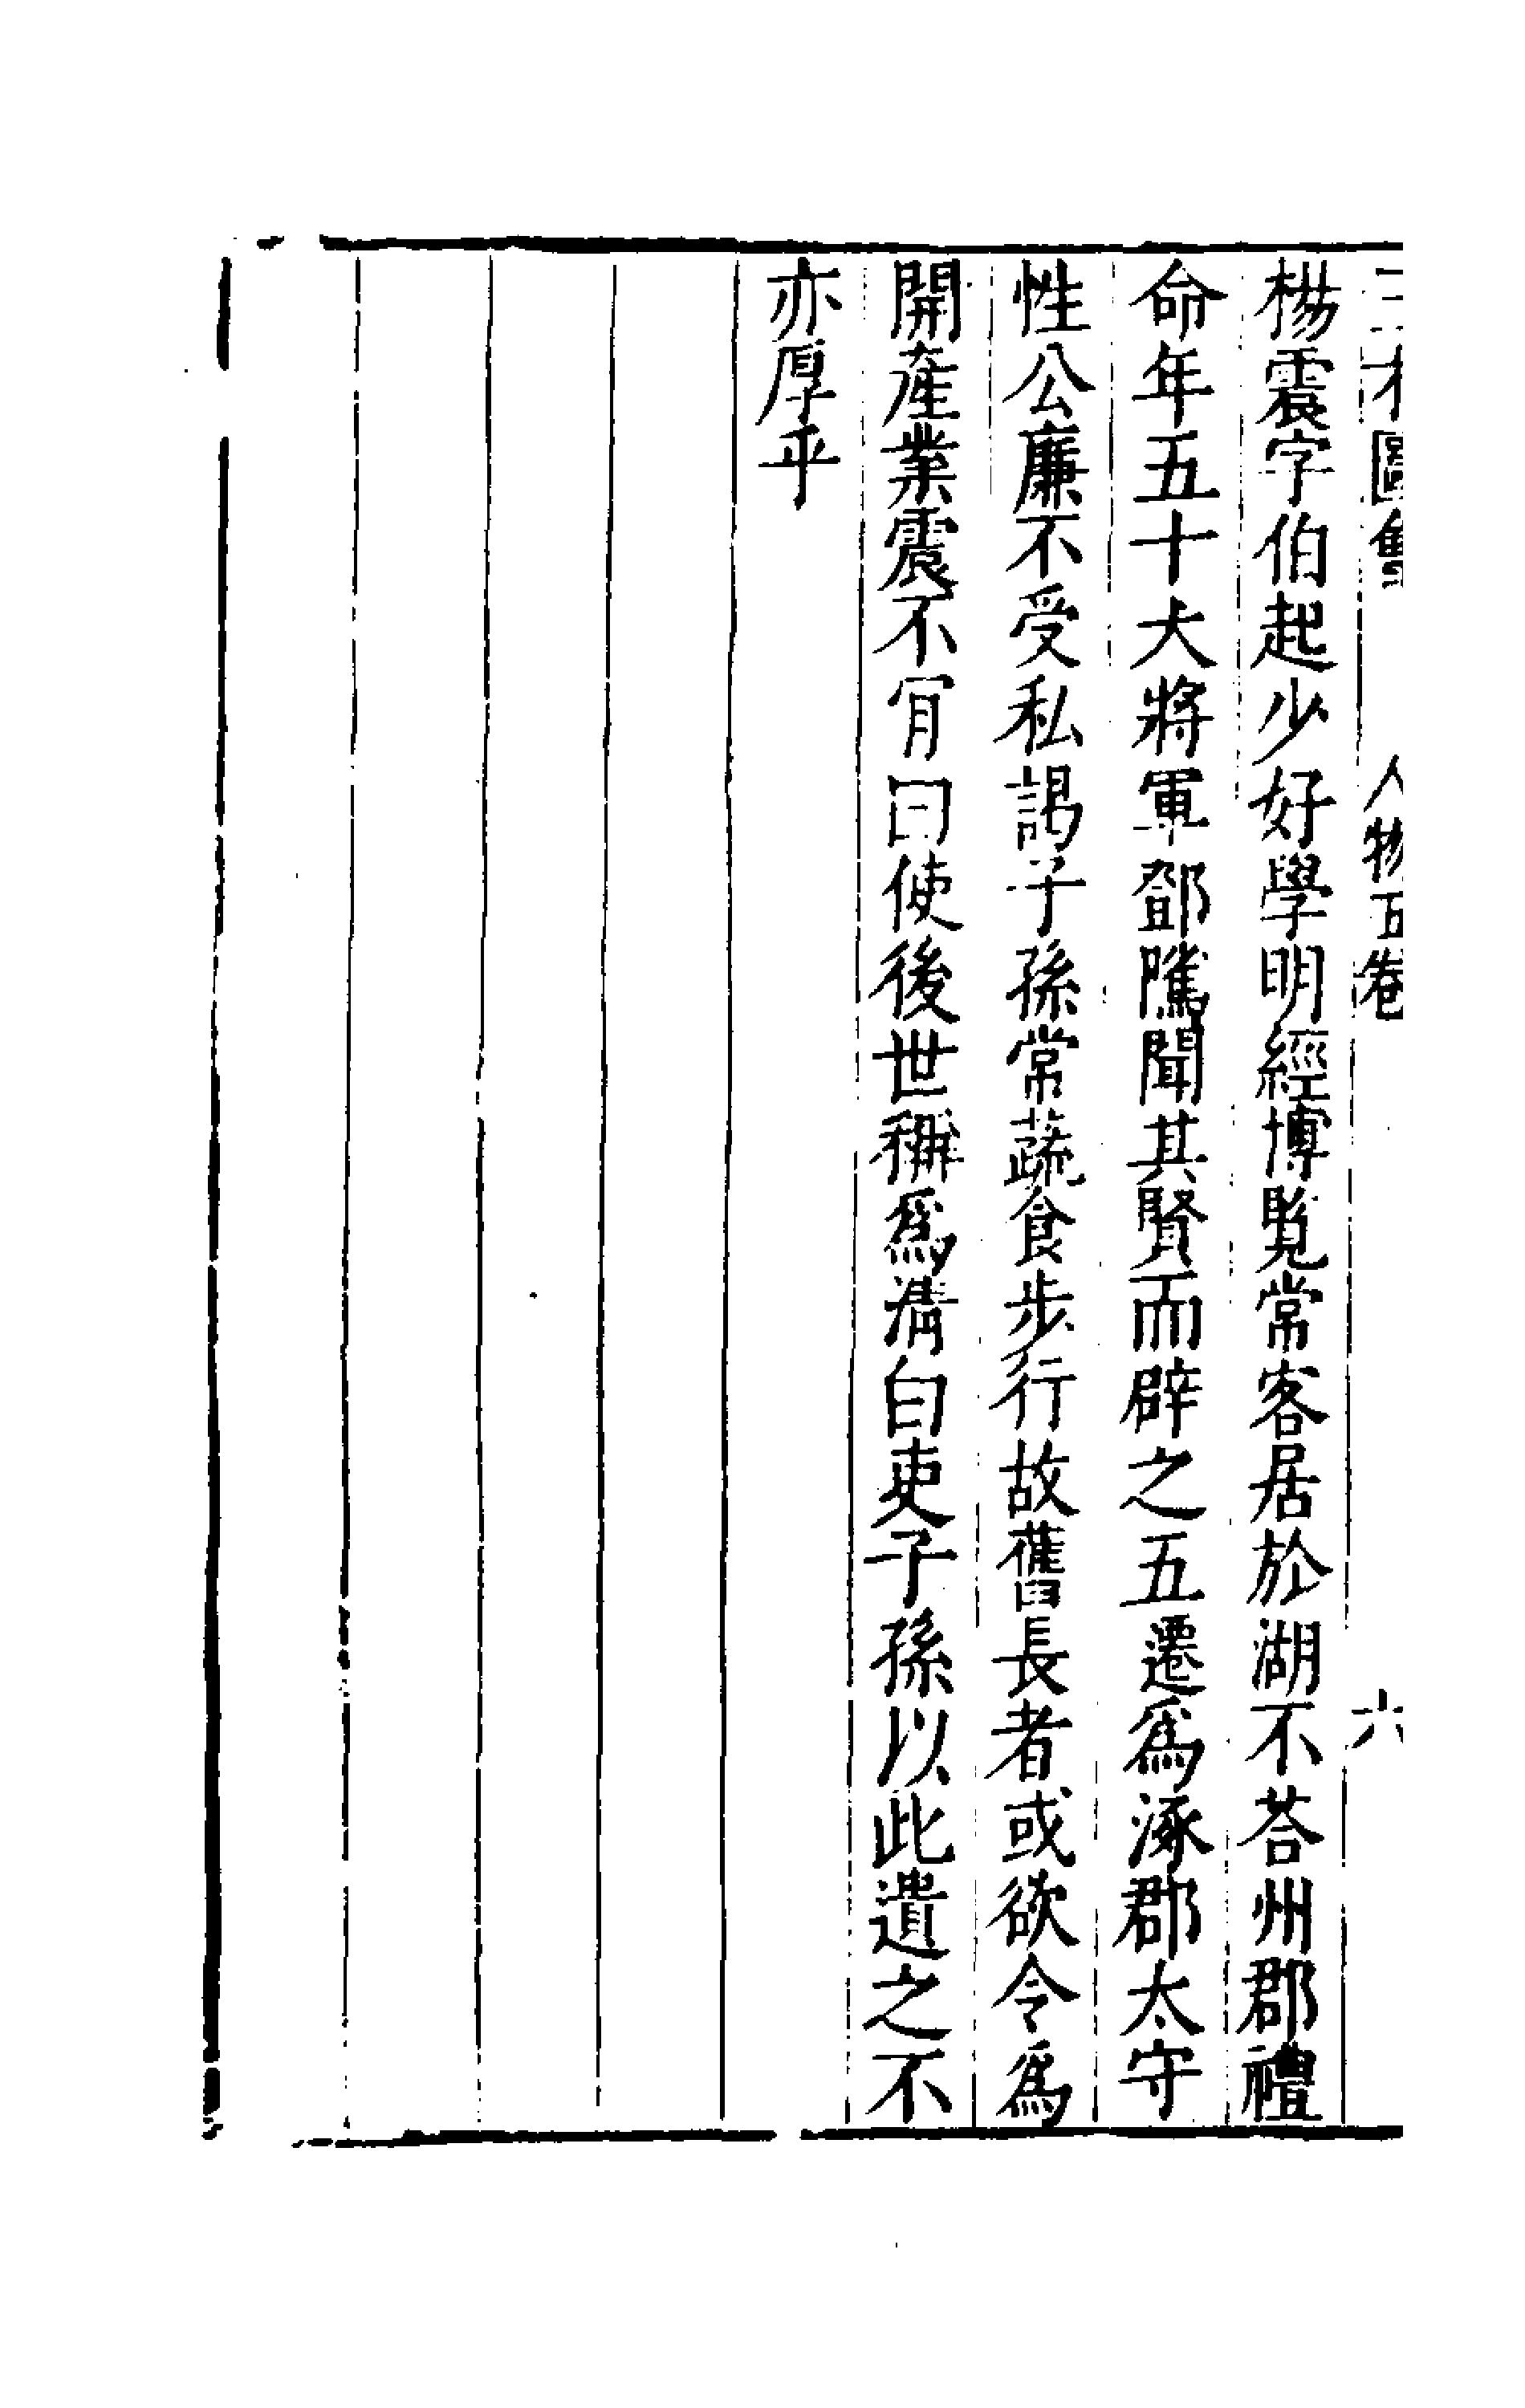 三才圖會 人物五卷 六
楊震字伯起少好學明經博覧常客居於湖不荅州郡禮
命年五十大將軍鄧騭聞其賢而辟之五遷爲涿郡太守
性公廉不受私謁子孫常蔬食步行故舊長者或欲令爲
開產業震不肎曰使後世稱爲清白吏子孫以此遺之不
亦厚乎